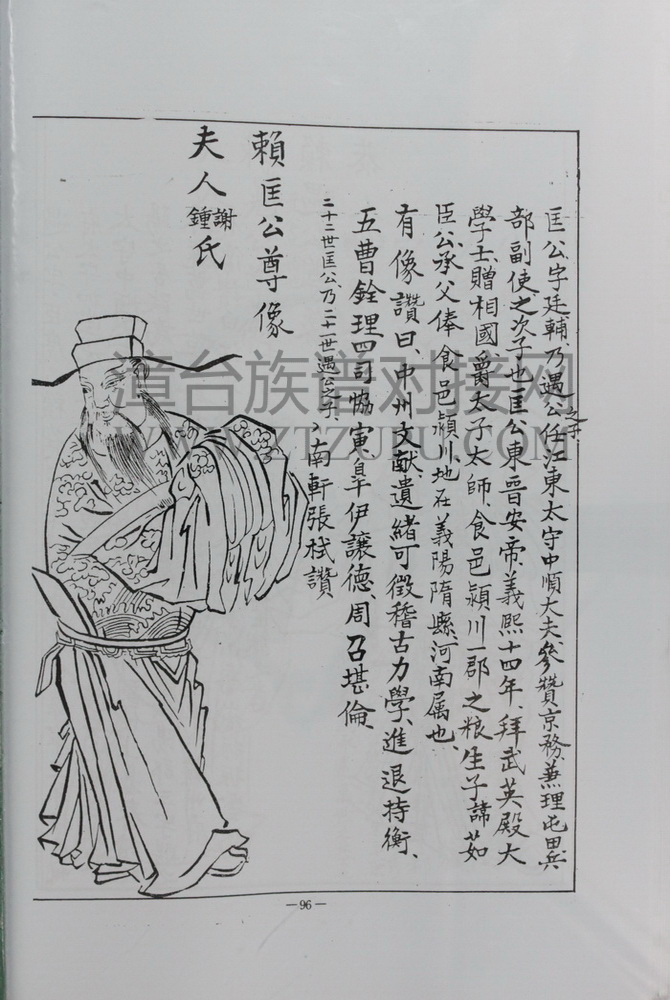 匡公、字廷輔、乃遇公之子任江東太守中順大夫、參贊京務、兼理屯田兵
部副使、之次子也、匡公東晉安帝、義熙十四年、拜武英殿大
學士、贈相國、爵太子太師、食邑潁川一郡之粮生子諦茹
臣公、承父俸、食邑潁川、地在義陽隋縣、河南属也、
有像讚曰、中州文献、遺緒可徵、稽古力學、進退持衡、
五曹銓理、四司恊寅、皐伊讓德、周召堪倫、
二十二世匡公、乃二十一世遇公之子、南軒張栻讚
賴匡公尊像
夫人謝鍾氏
漳台族谱对接网
WWW.ZTZUPU.COM
—96—